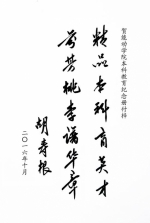 贺能动学院本科教育纪念册付梓
精品本科育英才
芬芳桃李誦华章
胡寿根
二〇一六年十月